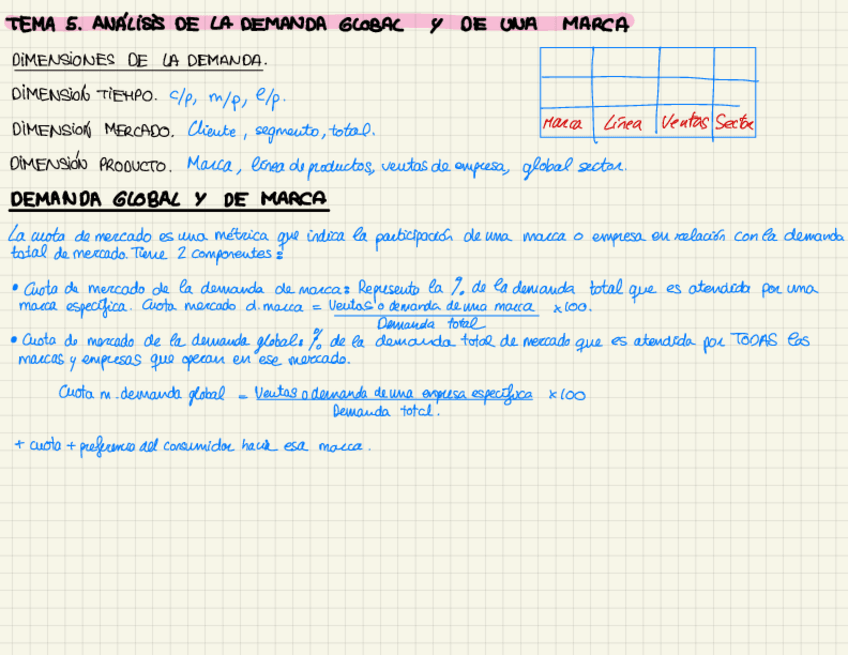 TEMA 5. ANÁLISIS DE LA DEMANDA GLOBAL Y DE UNA MARCA
DIMENSIONES DE LA DEMANDA.
DIMENSIÓN TIEMPO. c/p, m/p, l/p.
DIMENSIÓN MERCADO. Cliente, segmento, total.
Marca Línea Ventas Sector
DIMENSIÓN PRODUCTO. Marca, línea de productos, ventas de empresa, global sector.
DEMANDA GLOBAL Y DE MARCA
La cuota de mercado es una métrica que indica la participación de una marca o empresa en relación con la demanda
total de mercado. Tiene 2 componentes:
• Cuota de mercado de la demanda de marca: Representa la % de la demanda total que es atendida por una
marca específica. Cuota mercado d. marca = Ventas o demanda de una marca x100.
Demanda total
• Cuota de mercado de la demanda global: % de la demanda total de mercado que es atendida por TODAS las
marcas y empresas que operan en ese mercado.
Cuota m. demanda global = Ventas o demanda de una empresa específica x100
Demanda total.
+ cuota + preferencia del consumidor hacia esa marca.